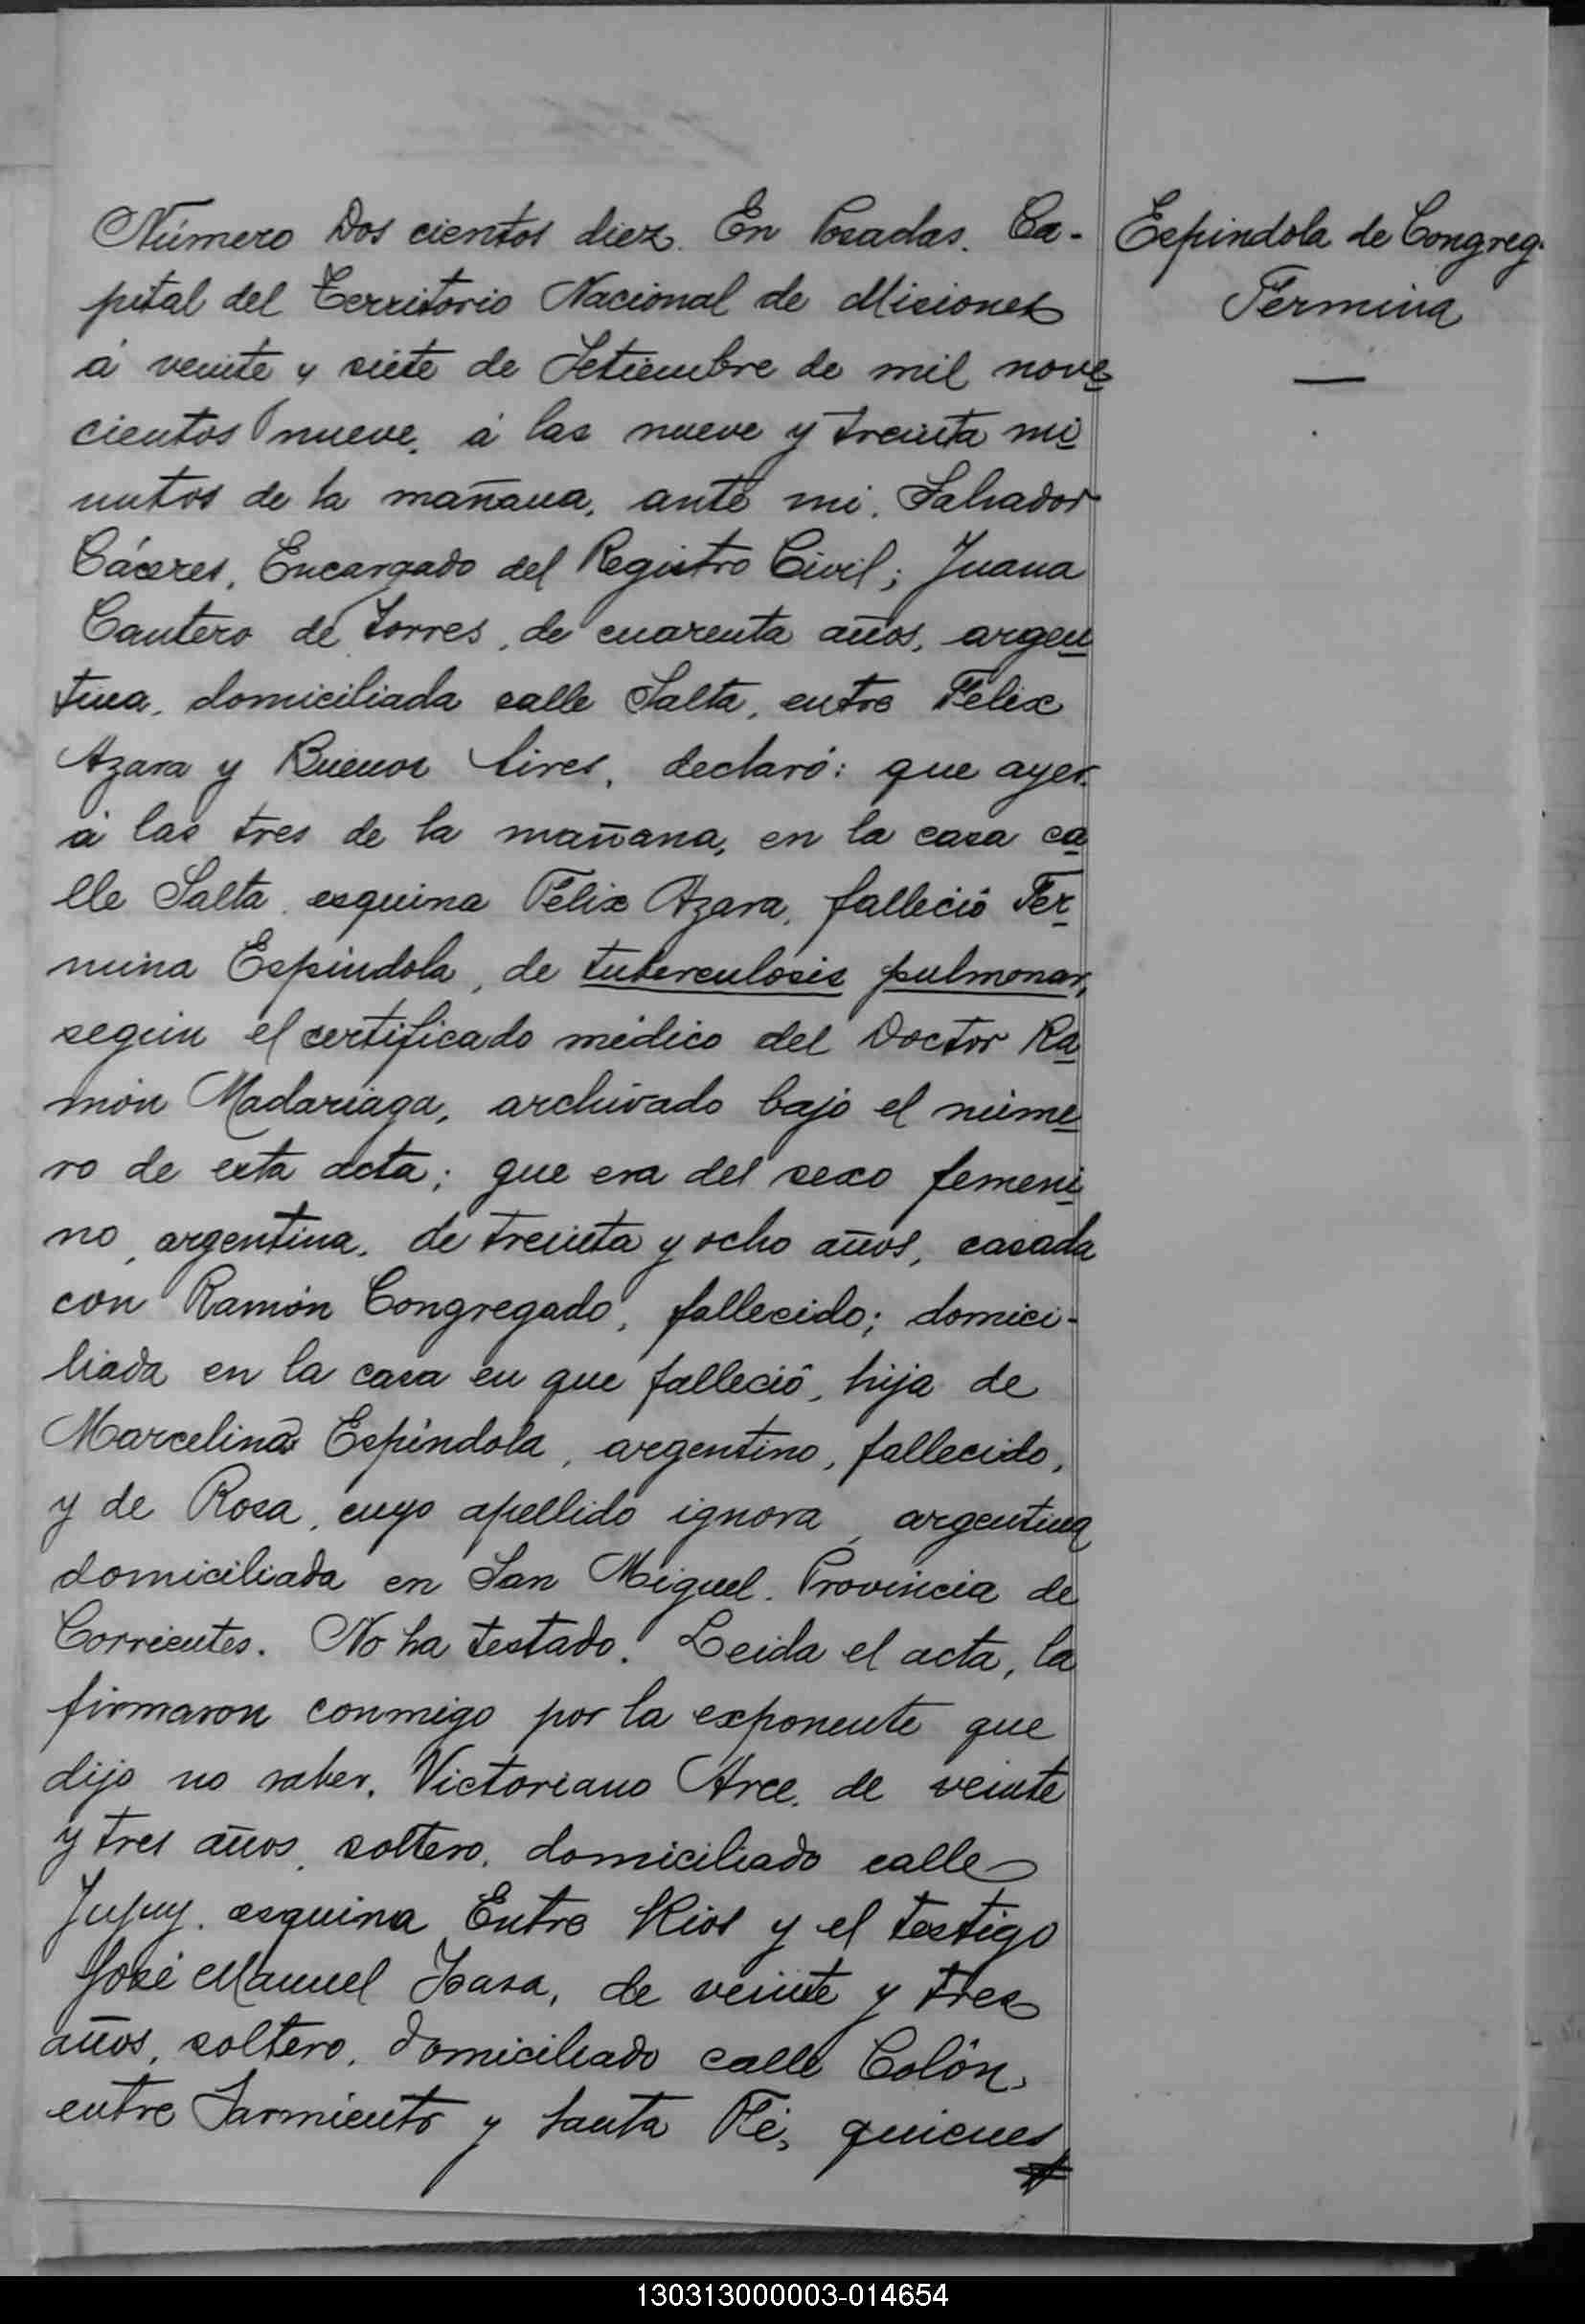 Número Dos cientos diez. En Posadas. Ca-
pital del Territorio Nacional de Misiones
á veinte y siete de Setiembre de mil nove
cientos nueve, á las nueve y treinta mi
nutos de la mañana, ante mi, Salvador
Cáceres, Encargado del Registro Civil; Juana
Cantero de Torres, de cuarenta años, argen
tina, domiciliada calle Salta, entre Felix
Azara y Buenos Aires, declaró: que ayer
á las tres de la mañana, en la casa ca
lle Salta esquina Felix Azara, falleció Fer
mina Espindola, de tuberculosis pulmonar,
según el certificado médico del Doctor Ra
món Madariaga, archivado bajo el núme
ro de esta acta; que era del sexo femeni
no, argentina, de treinta y ocho años, casada
con Ramón Congregado, fallecido; domici-
liada en la casa en que falleció, hija de
Marcelino Espíndola, argentino, fallecido,
y de Rosa, cuyo apellido ignora, argentina
domiciliada en San Miguel. Provincia de
Corrientes. No ha testado. Leida el acta, la
firmaron conmigo por la exponente que
dijo no saber, Victoriano Arce, de veinte
y tres años, soltero, domiciliado calle
Jujuy esquina Entre Rios y el testigo
José Manuel Isasa, de veinte y tres
años, soltero, domiciliado calle Colón,
entre Sarmiento y Santa Fé, quienes
Espindola de Congreg.
Fermina
130313000003-014654